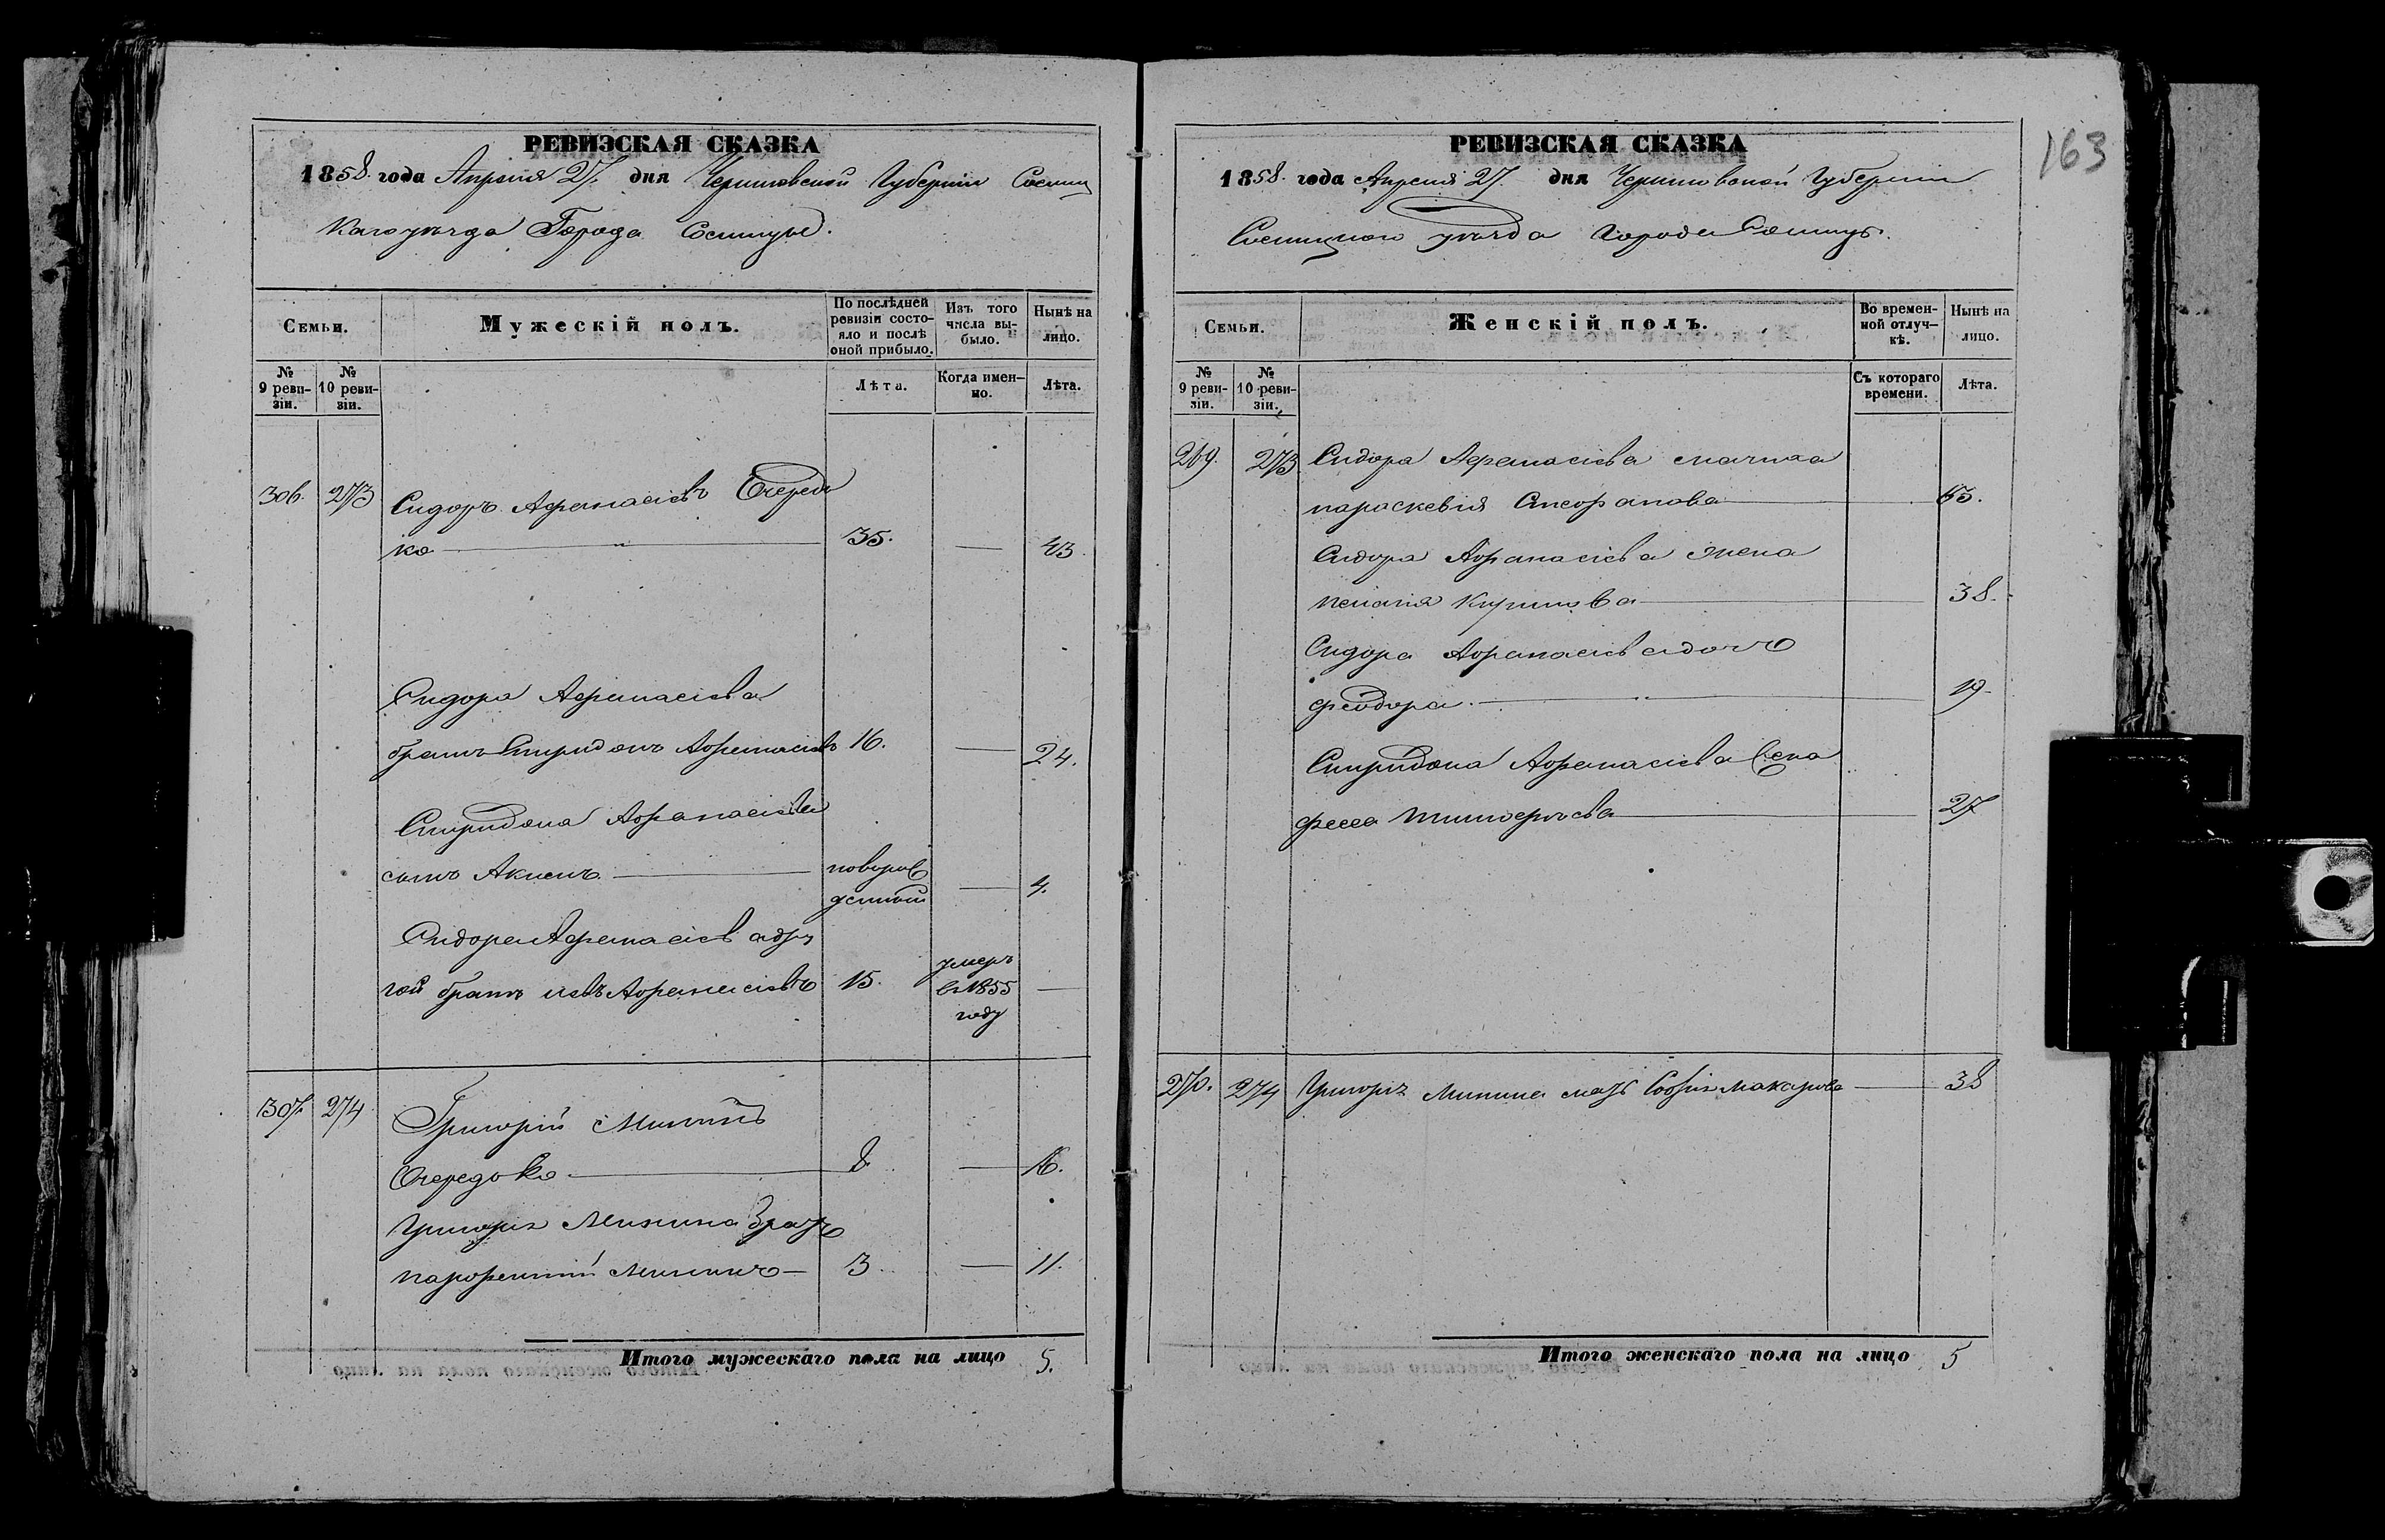 РЕВИЗСКАЯ СКАЗКА
1858 года Апреля 27 дня Черниговской Губерніи Сосниц
каго уѣзда Города Сосницы.
Семьи.
Мужескій полъ.
По послѣдней ревизіи состояло и послѣ оной прибыло.
Изъ того числа выбыло.
Нынѣ на лицо.
№ 9 ревизіи.
№ 10 ревизіи.
Лѣта.
Когда именно.
Лѣта.
306. 273 Сидоръ Афанасіевъ Очередь
ко 35. — 43.
Сидора Афанасіева
братъ Спиридонъ Афанасіевъ 16. — 24.
Спиридона Афанасіева
сынъ Акимъ новорож
денный — 4.
Сидора Афанасіева дру
гой братъ Афанасіевъ 15. умеръ
в 1855
году —
307. 274 Григорій Мининъ
Очередько 8. — 16.
Григорія Минина братъ
Парфентій Мининъ — 3. — 11.
Итого мужескаго пола на лицо 5.
163
РЕВИЗСКАЯ СКАЗКА
1858 года Апреля 27 дня Черниговской Губерніи
Сосницкаго уѣзда города Сосницы.
Семьи.
Женскій полъ.
Во временной отлучкѣ.
Нынѣ на лицо.
№ 9 ревизіи.
№ 10 ревизіи.
Съ котораго времени.
Лѣта.
269. 273 Сидора Афанасіева мачиха
параскевія 65.
Сидора Афанасіева жена
38.
Сидора Афанасіева дочь
феодора. 19.
Спиридона Афанасіева жена
Тимофеева 27
270. 274 Григорія Минина мать Софія Макарова — 38
Итого женскаго пола на лицо 5